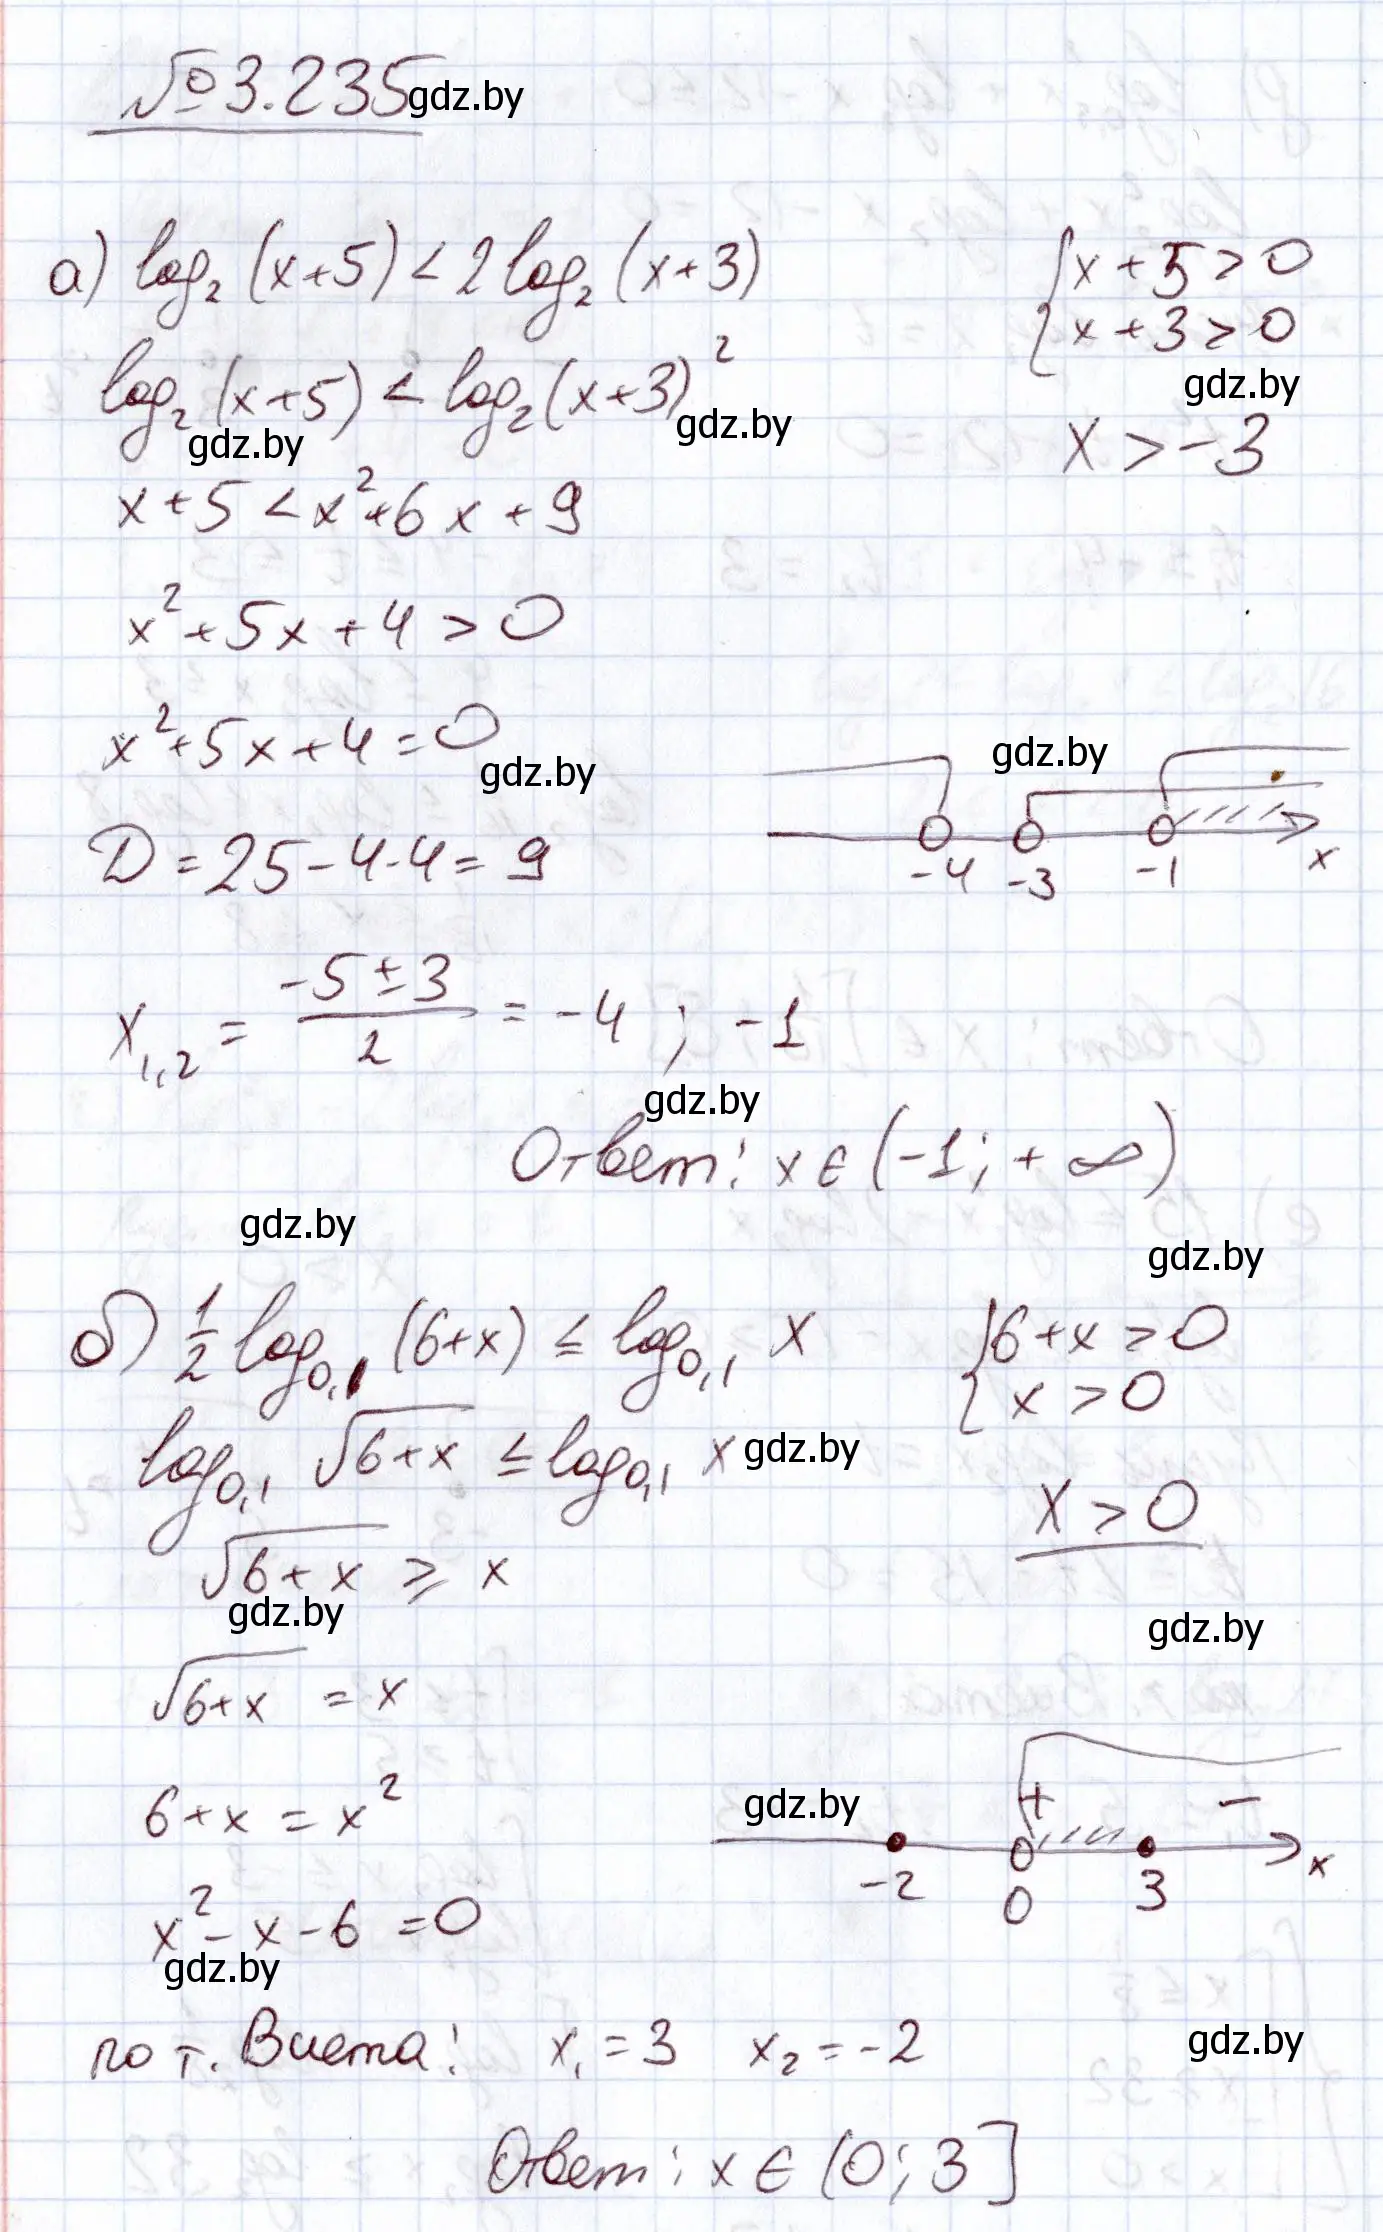 №3.235 gdz.by
а) log₂(x+5) < 2log₂(x+3)
{ x+5>0
log₂(x+5) < log₂(x+3)²
{ x+3>0
gdz.by
gdz.by
gdz.by
x > -3
x+5 < x²+6x+9
x²+5x+4 > 0
x²+5x+4 = 0
gdz.by
gdz.by
D = 25-4·4 = 9
-4 -3 -1 x
x₁,₂ = (-5±3)/2 = -4 ; -1
gdz.by
Ответ: x ∈ (-1; +∞)
gdz.by
gdz.by
б) 1/2 log₀,₁ (6+x) ≤ log₀,₁ x
{ 6+x > 0
{ x > 0
log₀,₁ √(6+x) ≤ log₀,₁ x
gdz.by
x > 0
√(6+x) ≥ x
gdz.by
gdz.by
√(6+x) = x
6+x = x²
gdz.by
+ -
-2 0 3 x
x²-x-6 = 0
gdz.by
по т. Виета: x₁ = 3 x₂ = -2
gdz.by
Ответ: x ∈ (0; 3]